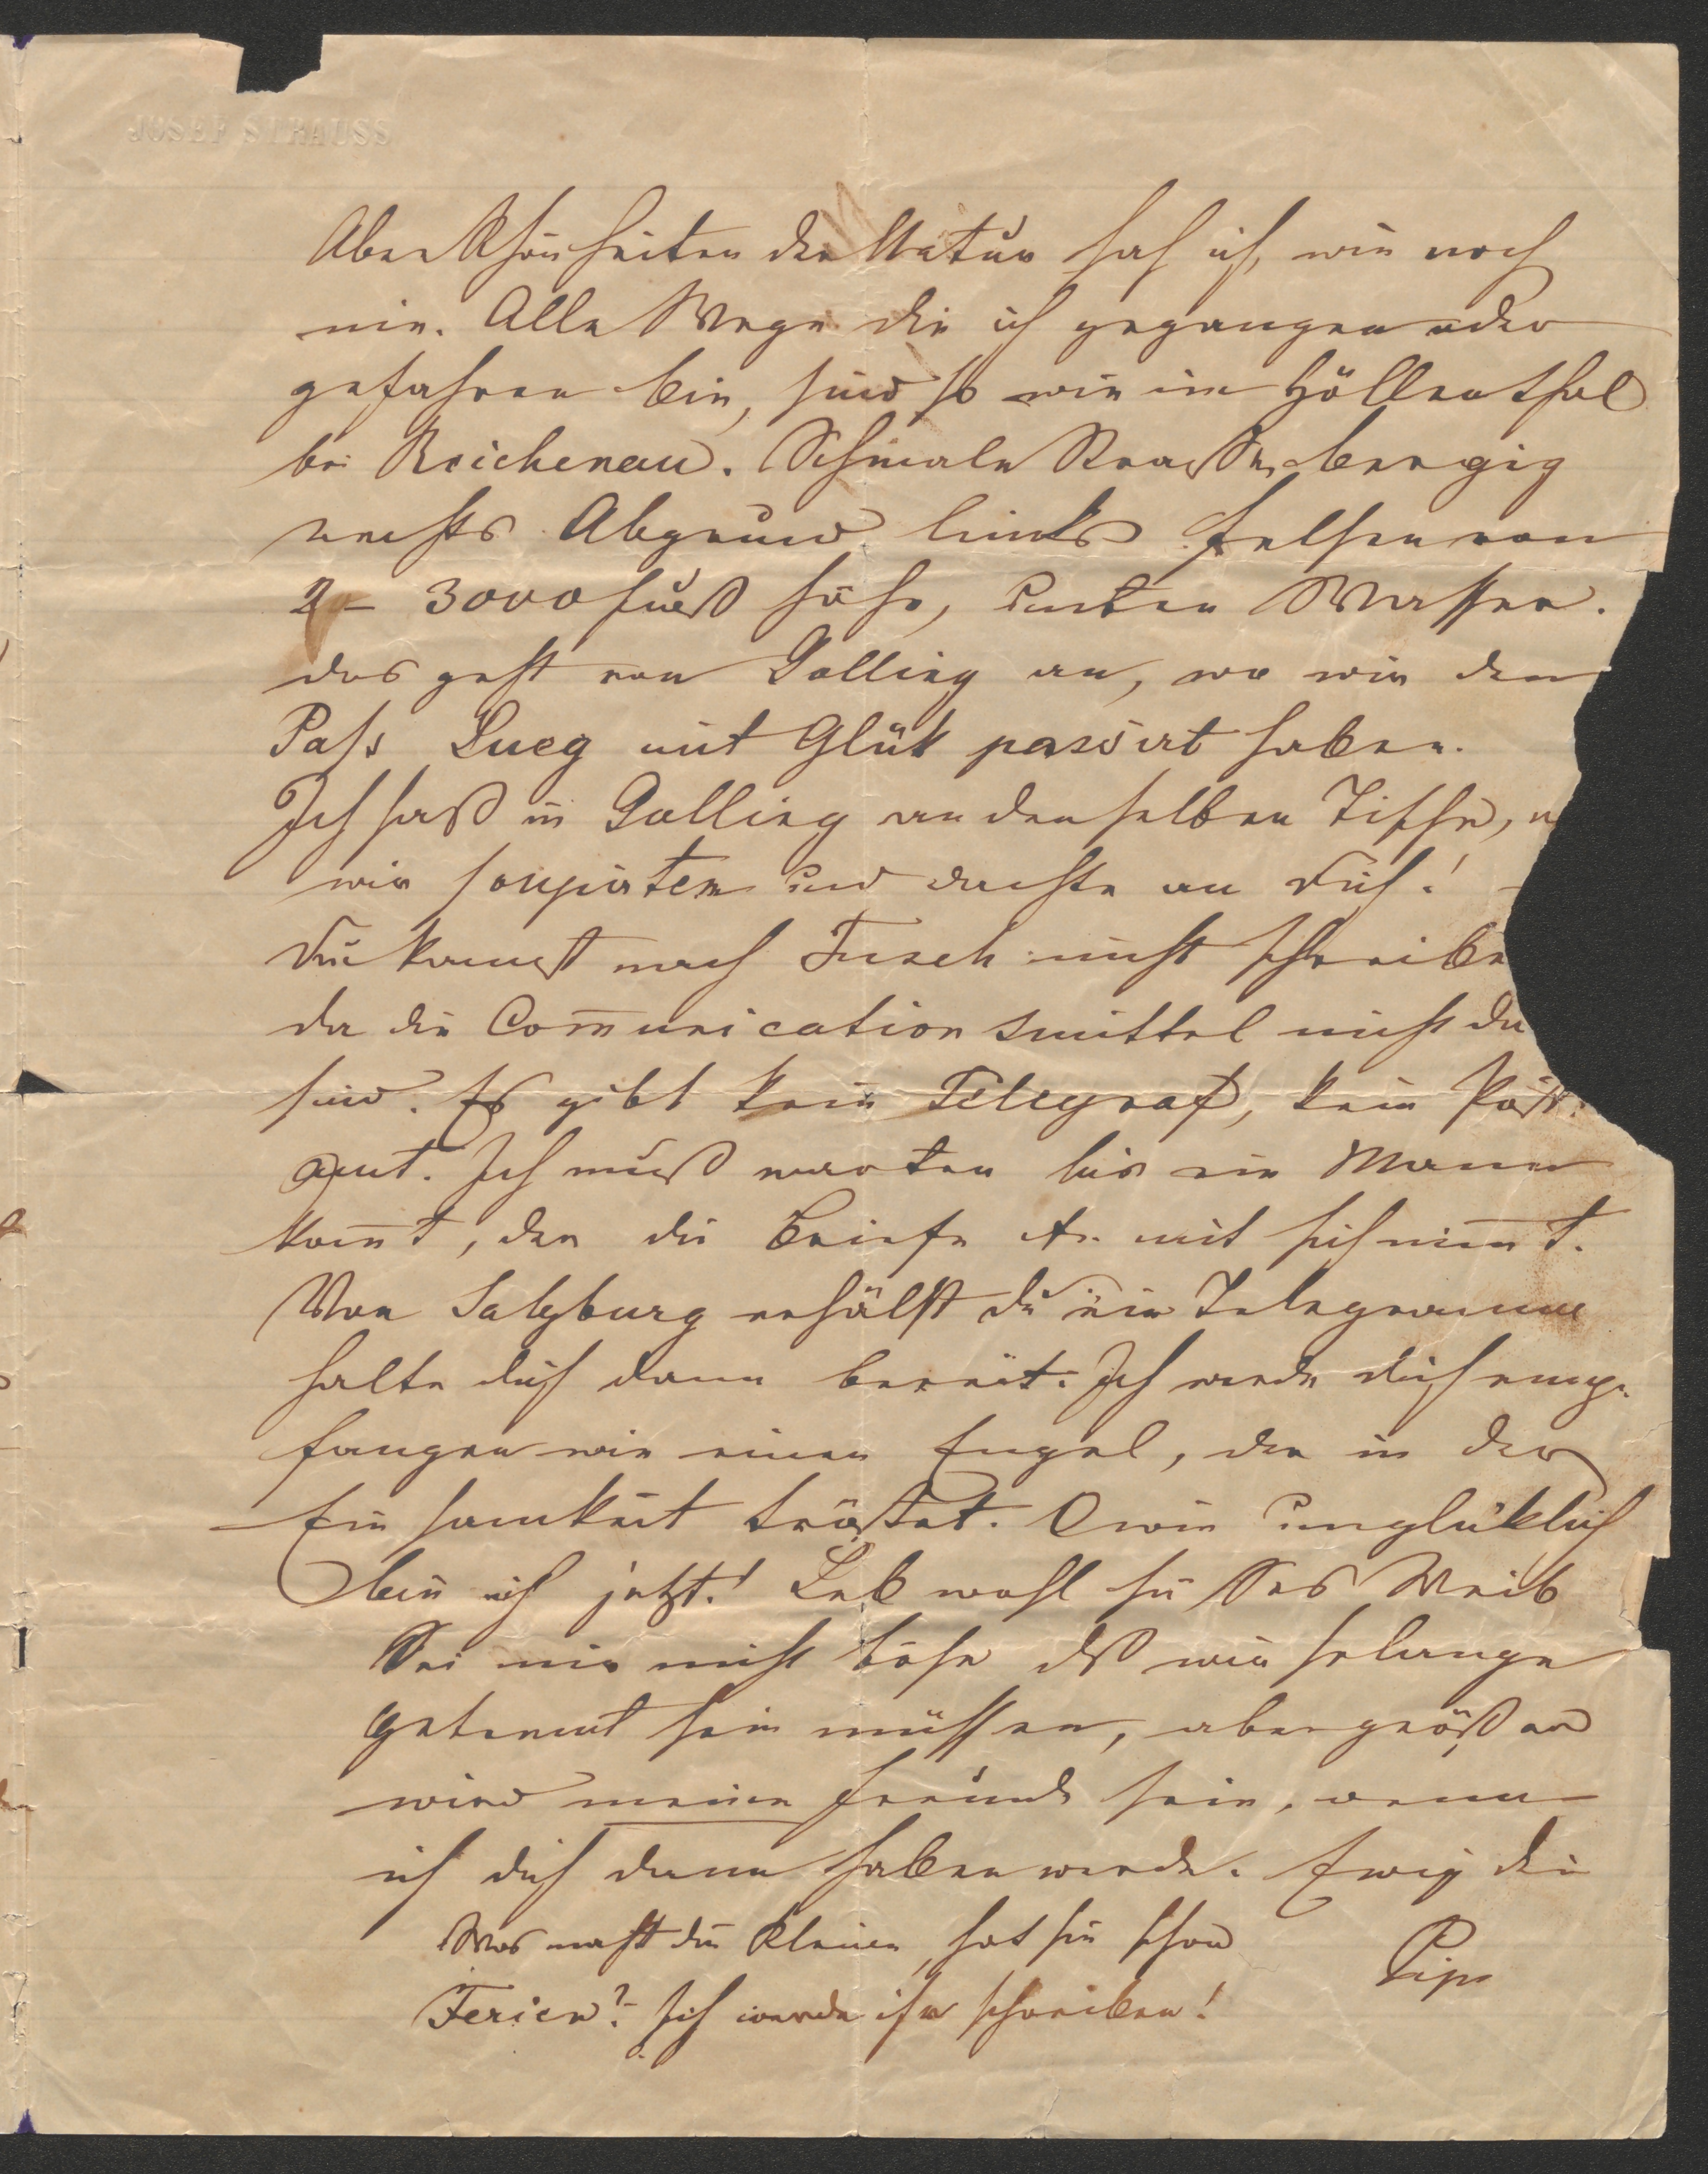 JOSEF STRAUSS
Aber Schönheiten der Natur sah ich, wie noch
nie. Alle Wege die ich gegangen oder
gefahren bin, sind so wie im Höllenthal
bei Reichenau. Schmale Strasse, bergig
rechts Abgrund links Felsen von
2 – 3000 Fuß Höhe, unten Wasser.
das geht von Golling an, wo wir den
Pass Lueg mit Glük passirt haben.
Ich saß in Golling an demselben Tische,
wir soupirten und dachte an dich!
Du kannst nach Fusch nicht schreibe
da die Com̅unicationsmittel nicht da
sind. Es gibt kein Telegraf, kein Post-
amt. Ich muß warten bis ein Mann
kom̅t, der die Briefe etc. mit sich nim̅t.
Von Salzburg erhälst du ein Telegramm
halte dich dann bereit. Ich werde dich emp-
fangen wie einen Engel, der in der
Einsamkeit tröstet. O wie unglüklich
bin ich jetzt! Leb wohl süsses Weib
Sei mir nicht böse dß wir solange
getrennt sein müssen, aber größer
wird meine Freude sein, wenn
ich dich dann haben werde. Ewig dein
Pipo
Was macht die Kleine, hat sie schon
Ferien? Ich werde ihr schreiben!